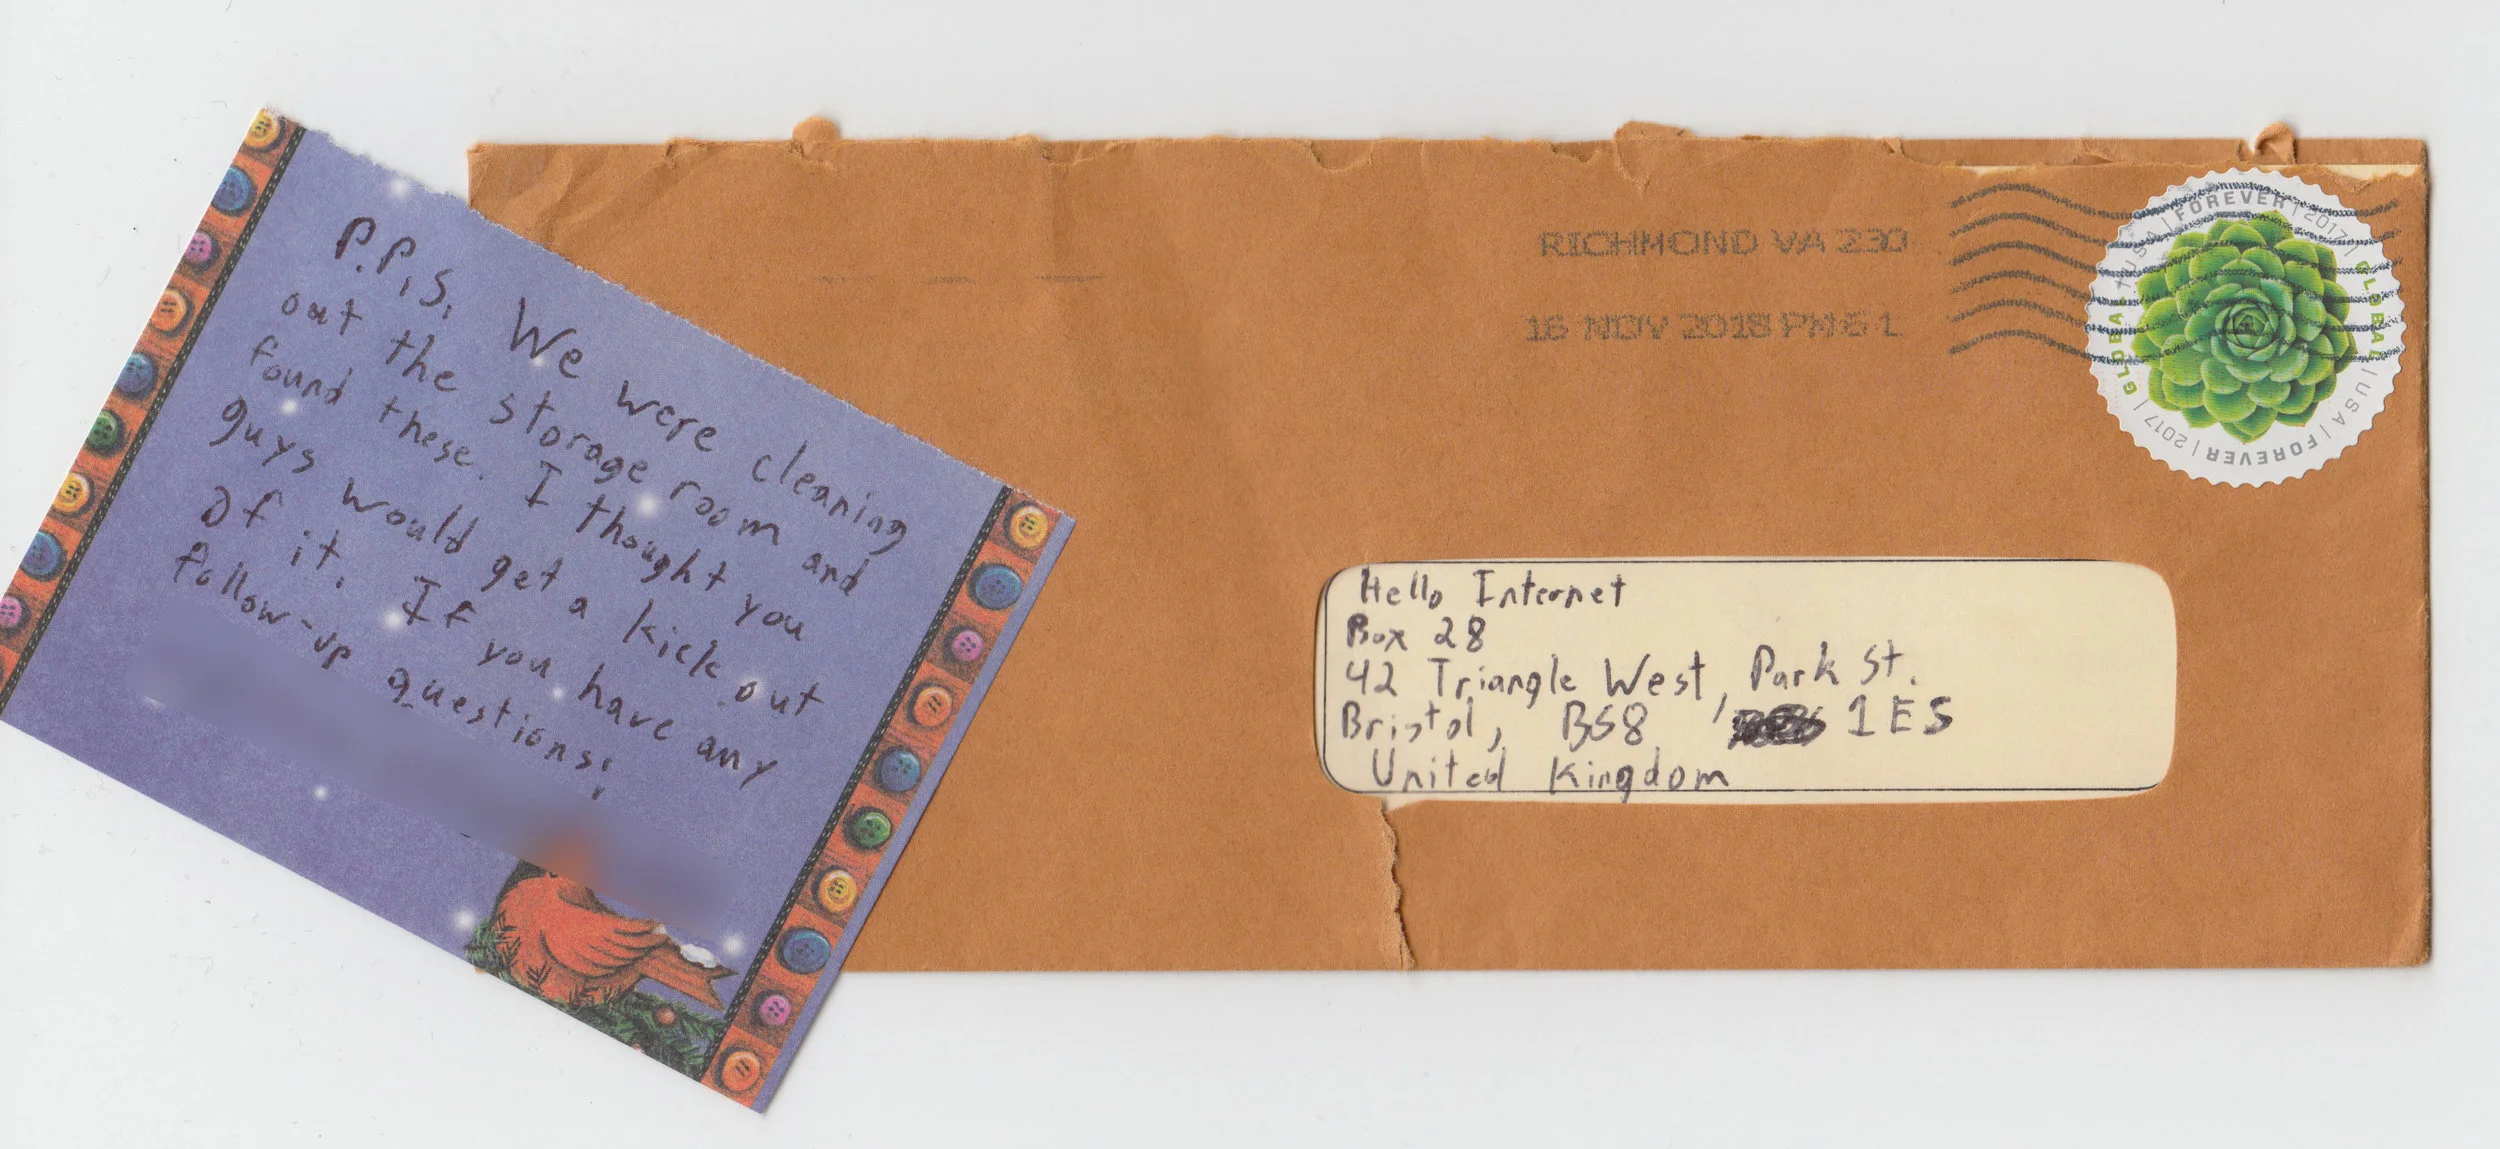 P.P.S. We were cleaning
out the storage room and
found these. I thought you
guys would get a kick out
of it. If you have any
follow-up questions!
RICHMOND VA 230
16 NOV 2018 PM 6 L
USA | FOREVER | 2017 | GLOBAL | USA | FOREVER | 2017 | GLOBAL
Hello Internet
Box 28
42 Triangle West, Park St.
Bristol, BS8 1ES
United Kingdom